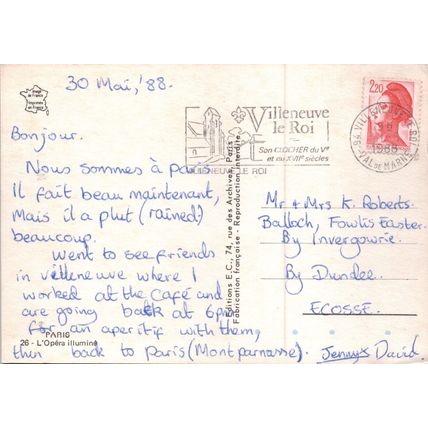 30 Mai, '88.
Image de France
Imprimée en France
Bonjour.
Nous sommes à paris
Il fait beau maintenant,
Mais il a plut (rained)
beaucoup.
went to see friends
in villeneuve where I
worked at the Café and
are going back at 6pm
for an aperitif with them,
then back to Paris (Montparnasse).
Jenny & David
PARIS
26 - L'Opéra illuminé
Editions E.C., 74, rue des Archives, Paris
Fabrication française - Reproduction interdite
Villeneuve
le Roi
Son CLOCHER du Ve
et au XVIIe siècles
VILLENEUVE LE ROI
2,20
1988
VAL DE MARNE
Mr & Mrs K. Roberts.
Balloch, Fowlis Easter.
By Invergowrie.
By Dundee.
ECOSSE.